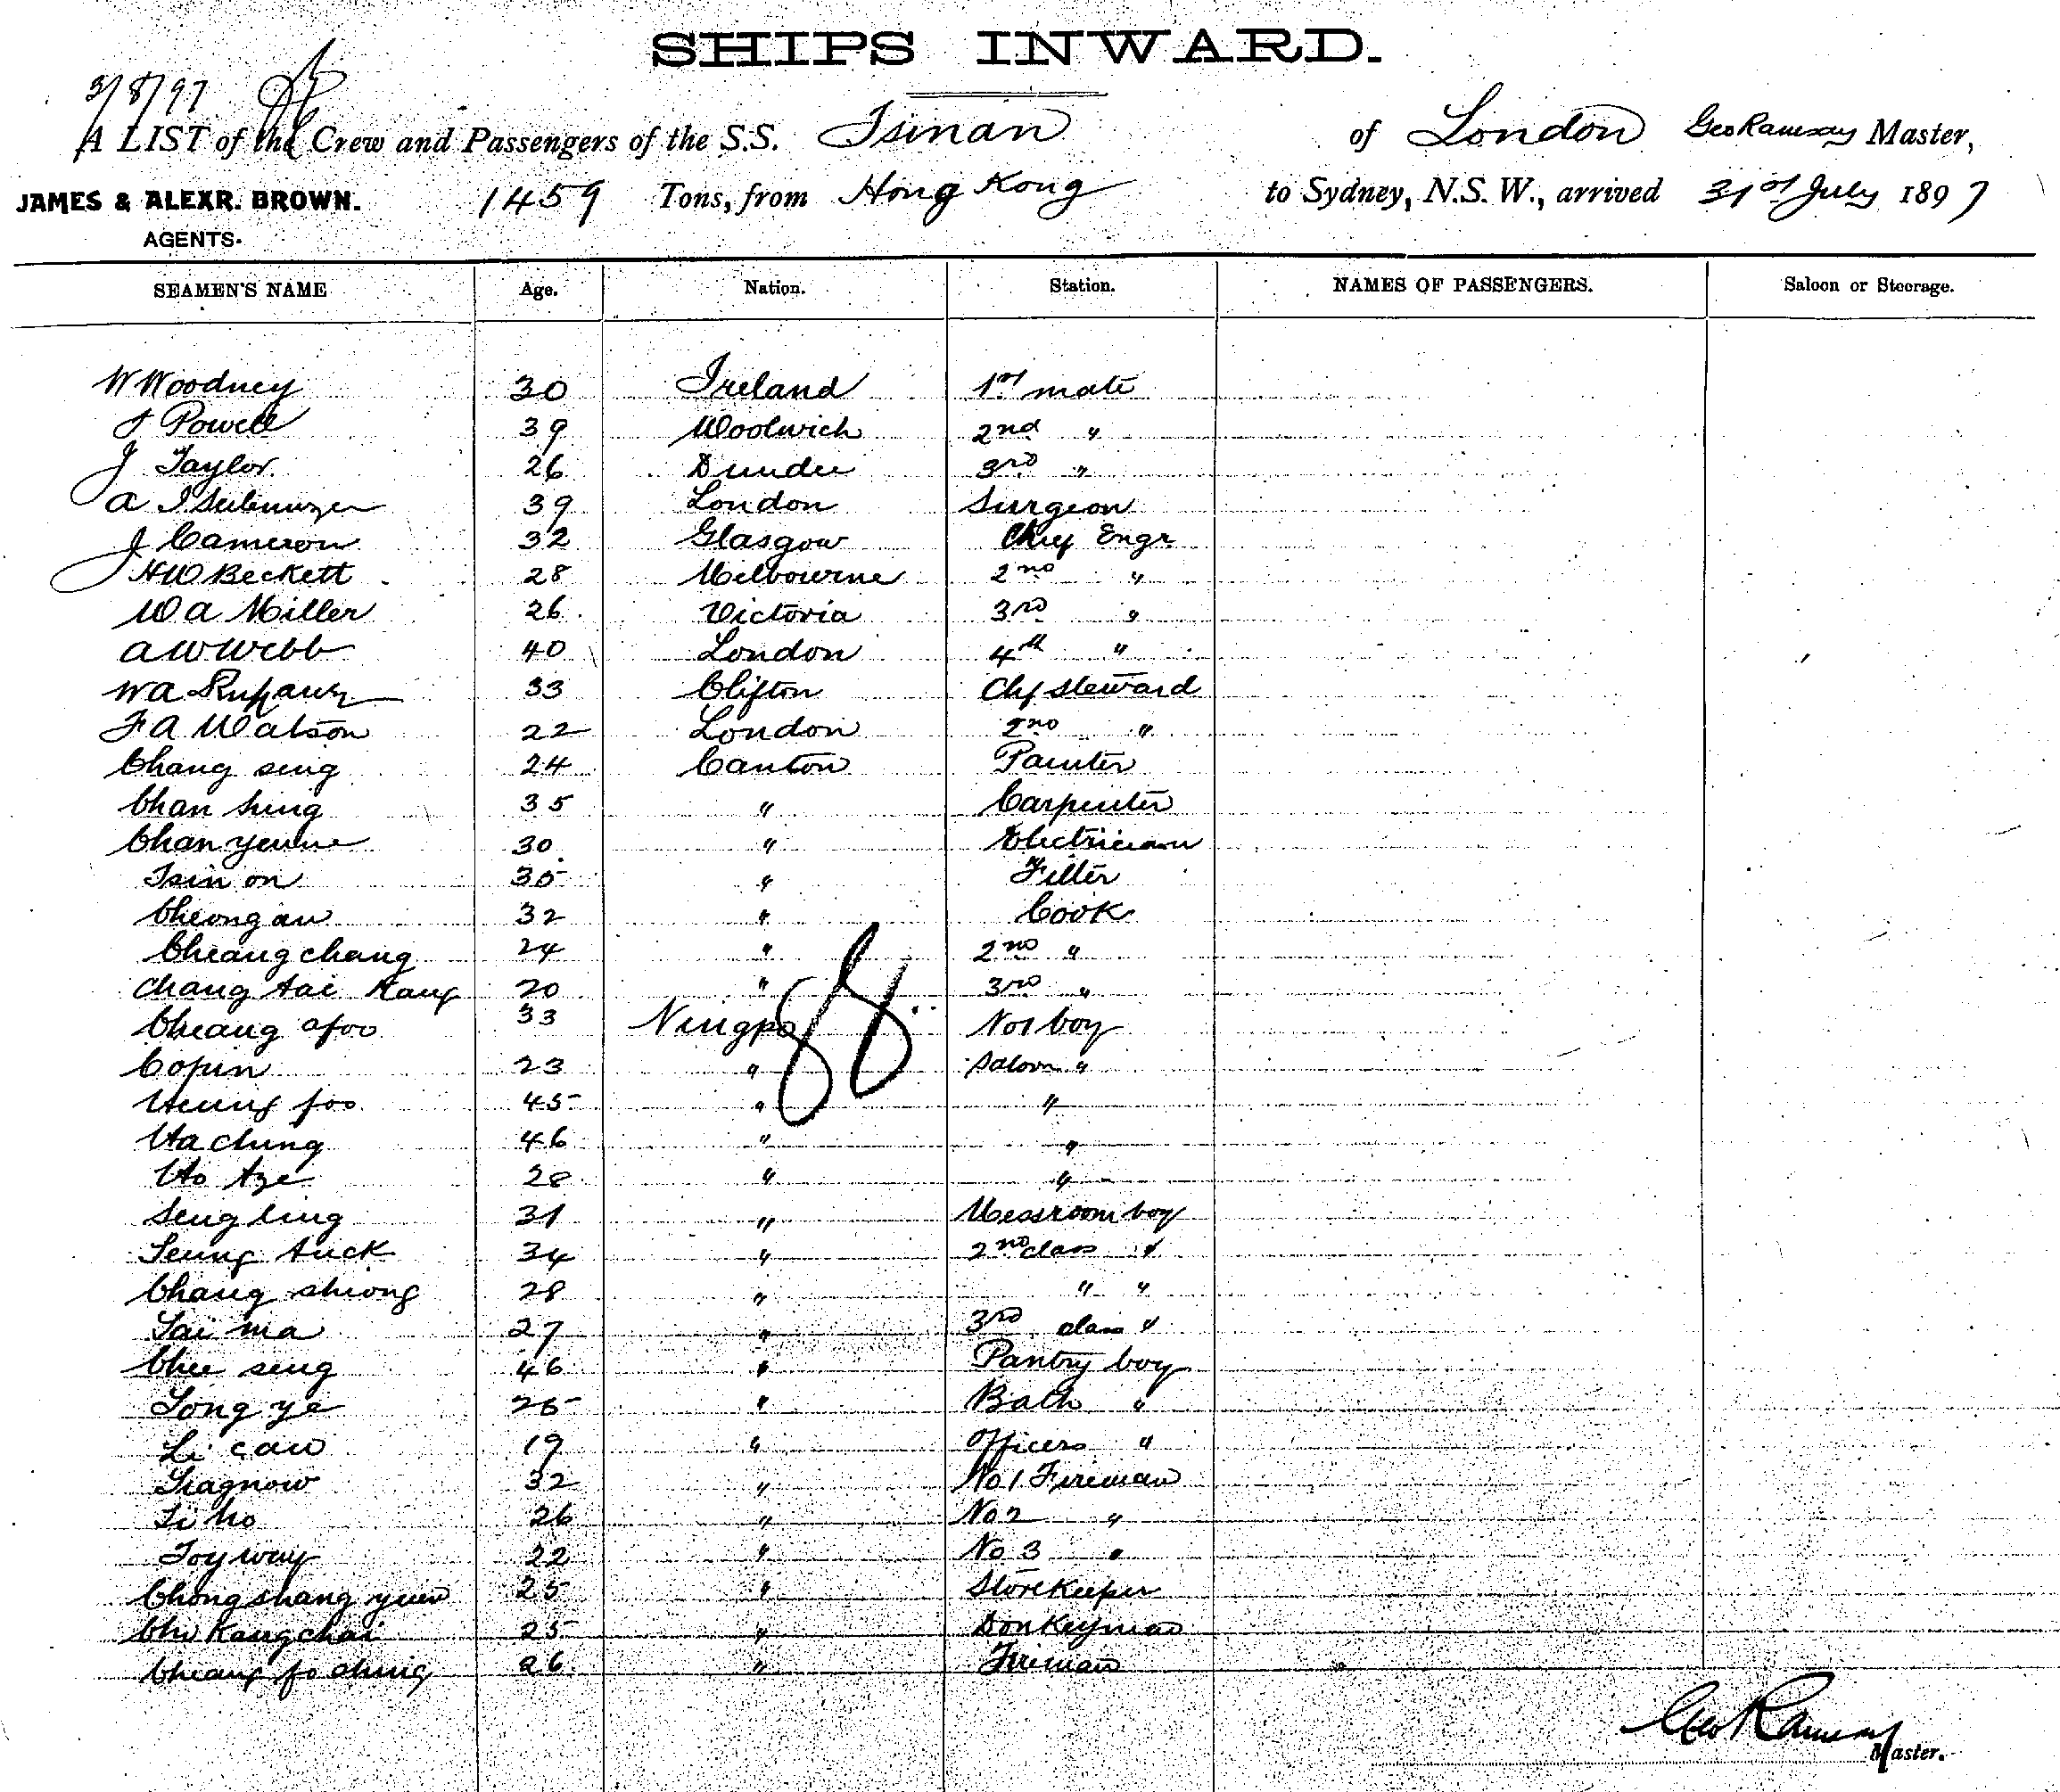 SHIPS INWARD.
3/8/97
A LIST of the Crew and Passengers of the S.S. Tsinan of London Geo Ramsay Master,
JAMES & ALEXR. BROWN. 1459 Tons, from Hong Kong to Sydney, N.S.W., arrived 31st July 1897
AGENTS.
SEAMEN'S NAME Age. Nation. Station. NAMES OF PASSENGERS. Saloon or Steerage.
W Woodney 30 Ireland 1st mate
Powell 39 Woolwich 2nd "
J Taylor 26 Dundee 3rd "
A 39 London Surgeon
J Cameron 32 Glasgow Chief Engr
HW Beckett 28 Melbourne 2nd "
W A Miller 26 Victoria 3rd "
A W Webb 40 London 4th "
W A 33 Clifton Chf Steward
F A Watson 22 London 2nd "
Chang seng 24 Canton Painter
Chan hing 35 " Carpenter
Chan 30 " Electrician
Tsin on 35 " Fitter
Cheong au 32 " Cook
Cheang chang 24 " 2nd "
Chang tai Kang 20 " 3rd "
Cheang afoo 33 Ningpo No 1 boy
Copin 23 " Saloon "
foo 45 " "
Ha ching 46 " "
Ho tze 28 " "
Seng ling 31 " Messroom boy
Seung tuck 34 " 2nd class "
Chang sheong 28 " " "
Tai ma 27 " 3rd class "
Chee seng 46 " Pantry boy
Tong ye 25 " Bath "
Li caw 19 " Officers "
Tiagnow 32 " No 1 Fireman
Ti ho 26 " No 2 "
Toy way 22 " No 3 "
Chong shang yuen 25 " Storekeeper
Chu Kang chai 25 " Donkeyman
Cheang fo ching 26 " Fireman
Geo Ramsay
Master.